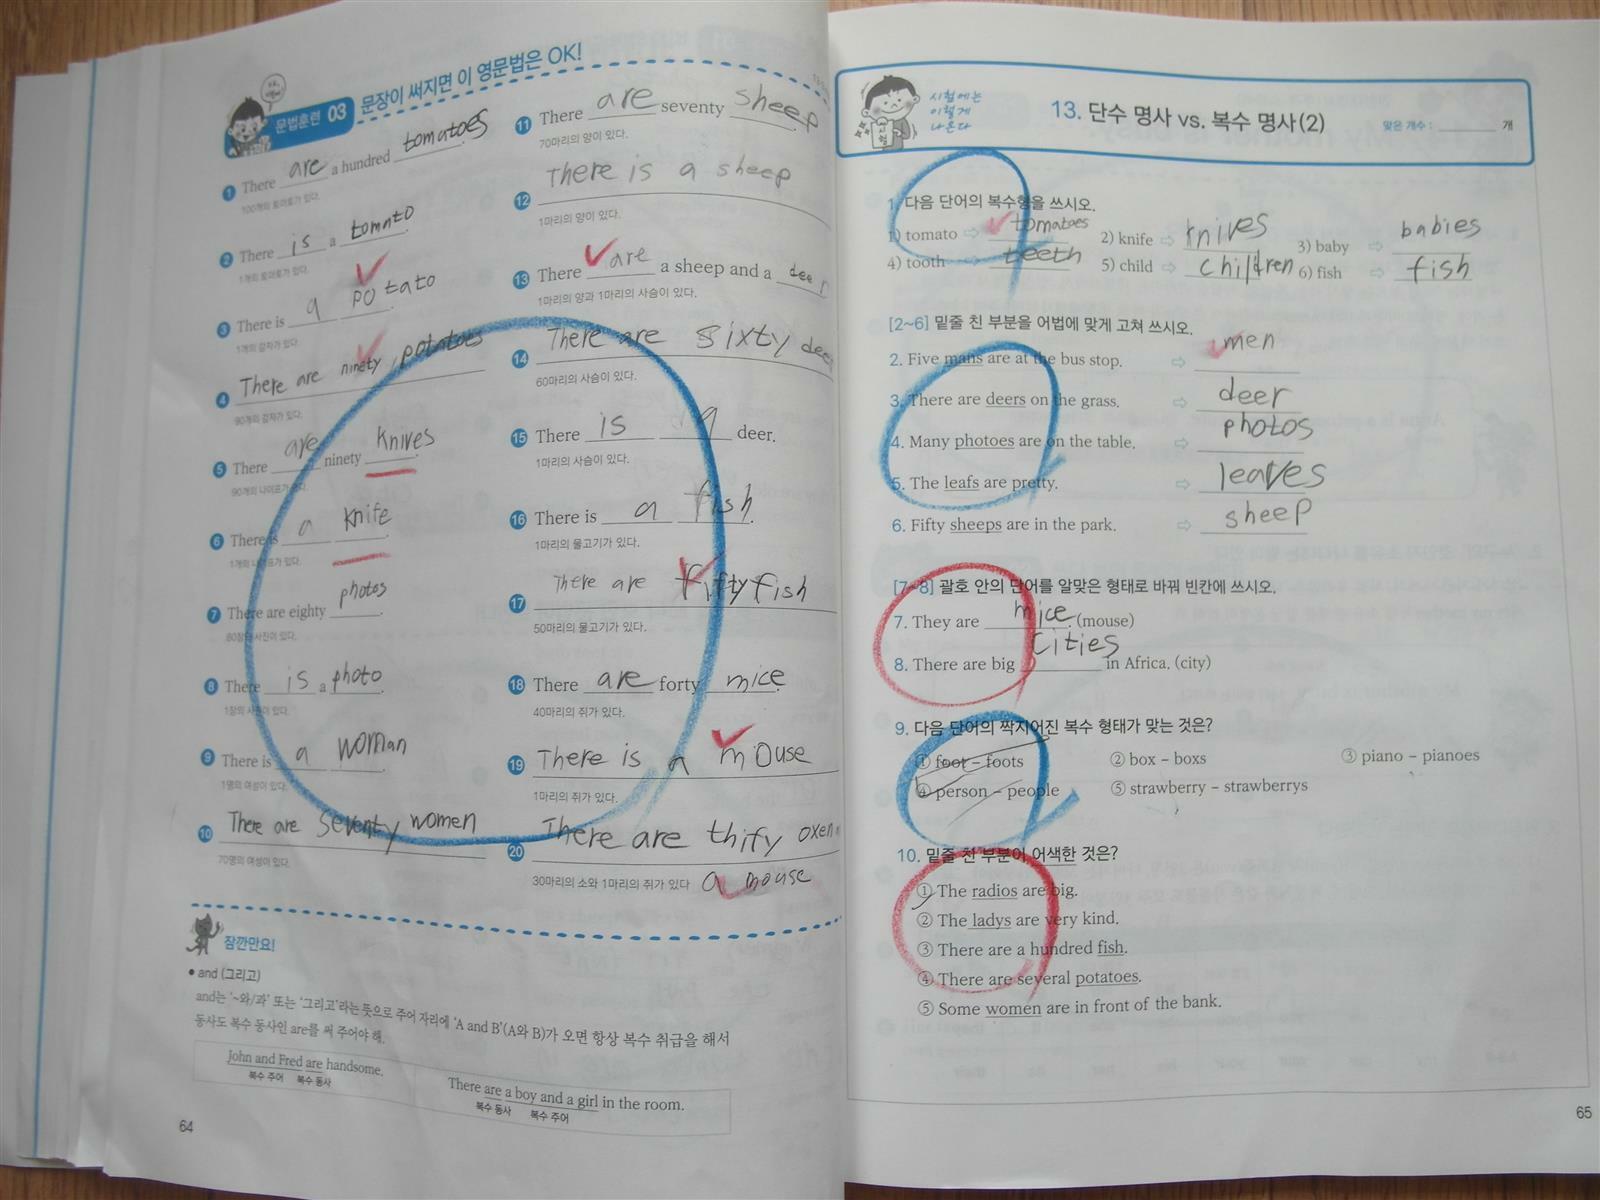 문법훈련 03 문장이 써지면 이 영문법은 OK!
1 There are a hundred tomatoes.
100개의 토마토가 있다.
2 There is a tomato.
1개의 토마토가 있다.
3 There is a potato
1개의 감자가 있다.
4 There are ninety potatoes
90개의 감자가 있다.
5 There are ninety knives.
90개의 나이프가 있다.
6 There is a knife.
1개의 나이프가 있다.
7 There are eighty photos.
80장의 사진이 있다.
8 There is a photo.
1장의 사진이 있다.
9 There is a woman.
1명의 여성이 있다.
10 There are seventy women
70명의 여성이 있다.
11 There are seventy sheep.
70마리의 양이 있다.
12 There is a sheep
1마리의 양이 있다.
13 There are a sheep and a deer
1마리의 양과 1마리의 사슴이 있다.
14 There are sixty deer
60마리의 사슴이 있다.
15 There is a deer.
1마리의 사슴이 있다.
16 There is a fish.
1마리의 물고기가 있다.
17 There are fifty fish
50마리의 물고기가 있다.
18 There are forty mice.
40마리의 쥐가 있다.
19 There is a mouse
1마리의 쥐가 있다.
20 There are thifty oxen
30마리의 소와 1마리의 쥐가 있다 a mouse
잠깐만요!
• and (그리고)
and는 '~와/과' 또는 '그리고'라는 뜻으로 주어 자리에 'A and B'(A와 B)가 오면 항상 복수 취급을 해서
동사도 복수 동사인 are를 써 주어야 해.
John and Fred are handsome.
복수 주어 복수 동사
There are a boy and a girl in the room.
복수 동사 복수 주어
64
시험에는
이렇게
나온다
13. 단수 명사 vs. 복수 명사(2)
맞은 개수 : 개
1. 다음 단어의 복수형을 쓰시오.
1) tomato ⇨ tomatoes 2) knife ⇨ knives 3) baby ⇨ babies
4) tooth ⇨ teeth 5) child ⇨ children 6) fish ⇨ fish
[2~6] 밑줄 친 부분을 어법에 맞게 고쳐 쓰시오.
2. Five mans are at the bus stop. ⇨ men
3. There are deers on the grass. ⇨ deer
4. Many photoes are on the table. ⇨ photos
5. The leafs are pretty. ⇨ leaves
6. Fifty sheeps are in the park. ⇨ sheep
[7~8] 괄호 안의 단어를 알맞은 형태로 바꿔 빈칸에 쓰시오.
7. They are mice. (mouse)
8. There are big cities in Africa. (city)
9. 다음 단어의 짝지어진 복수 형태가 맞는 것은?
① foot – foots ② box – boxs ③ piano – pianoes
④ person – people ⑤ strawberry – strawberrys
10. 밑줄 친 부분이 어색한 것은?
① The radios are big.
② The ladys are very kind.
③ There are a hundred fish.
④ There are several potatoes.
⑤ Some women are in front of the bank.
65